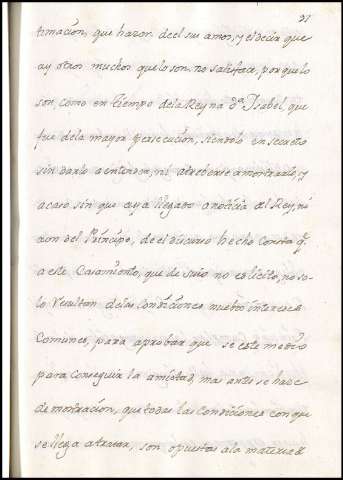 21
timación, que hazen de el su amor, y el decir que
ay otros muchos que lo son, no satisface, por que lo
son, Como en tiempo de la Reyna dª Isabel, que
fue de la mayor persecucion, siendolo en secreto
sin darlo a entender, ni atreberse a mostrarlo, y
acaso sin que aya llegado a noticia del Rey, ni
aun del Príncipe, de el discurso hecho Consta q.
a este Casamiento, que de suio no es lícito, no so-
lo resultan de las Condiciones nuebos intereses
Comunes, para aprobar que se este medio
para Conseguir la amistad, mas antes se haze
demostracion, que todas las Condiciones con que
se llega a tratar, son opuestas a la materia de